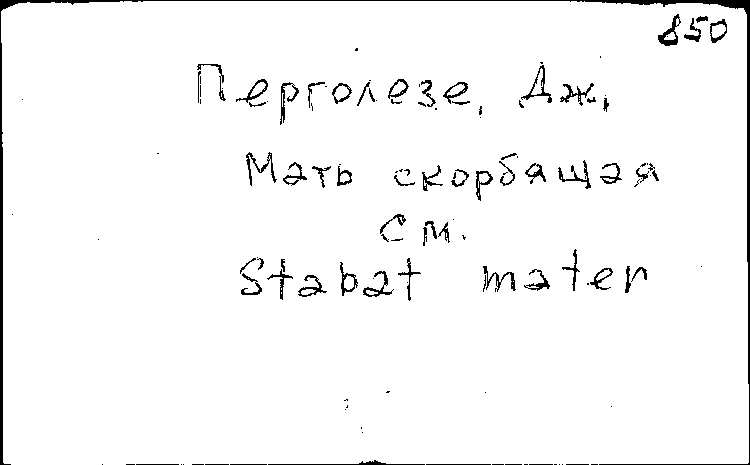 850
Перголезе, Дж.
Мать скорбящая
См.
Stabat mater